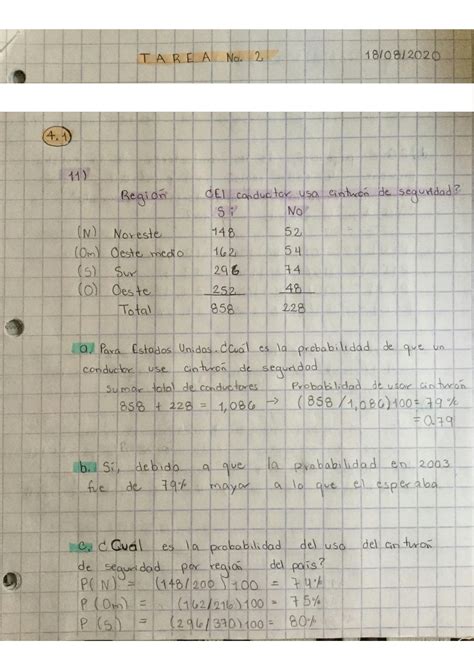 TAREA No. 2 18/08/2020
4.1
11)
Región ¿El conductor usa cinturón de seguridad?
Si No
(N) Noreste 148 52
(Om) Oeste medio 162 54
(S) Sur 296 74
(O) Oeste 252 48
Total 858 228
a. Para Estados Unidos. ¿Cual es la probabilidad de que un
conductor use cinturón de seguridad
Sumar total de conductores Probabilidad de usar cinturon
858 + 228 = 1,086 → (858/1,086)100 = 79%
= 0.79
b. Si, debido a que la probabilidad en 2003
fue de 79% mayor a lo que el esperaba
c. ¿Cual es la probabilidad del uso del cinturón
de seguridad por región del país?
P(N) = (148/200)100 = 74%
P(Om) = (162/216)100 = 75%
P(S) = (296/370)100 = 80%